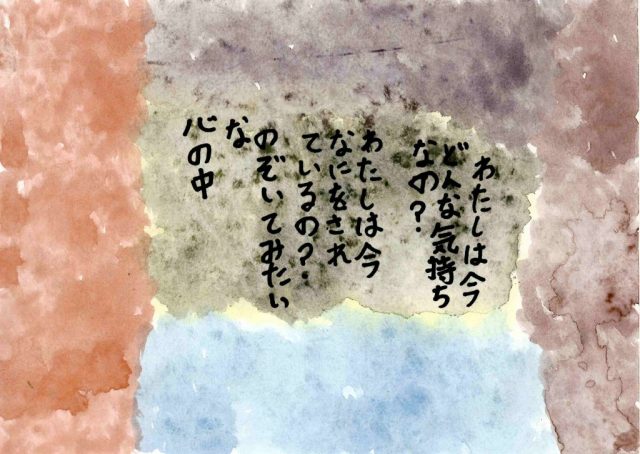 わたしは今
どんな気持ち
なの?
わたしは今
なにをされ
ているの?
のぞいてみたい
な
心の中